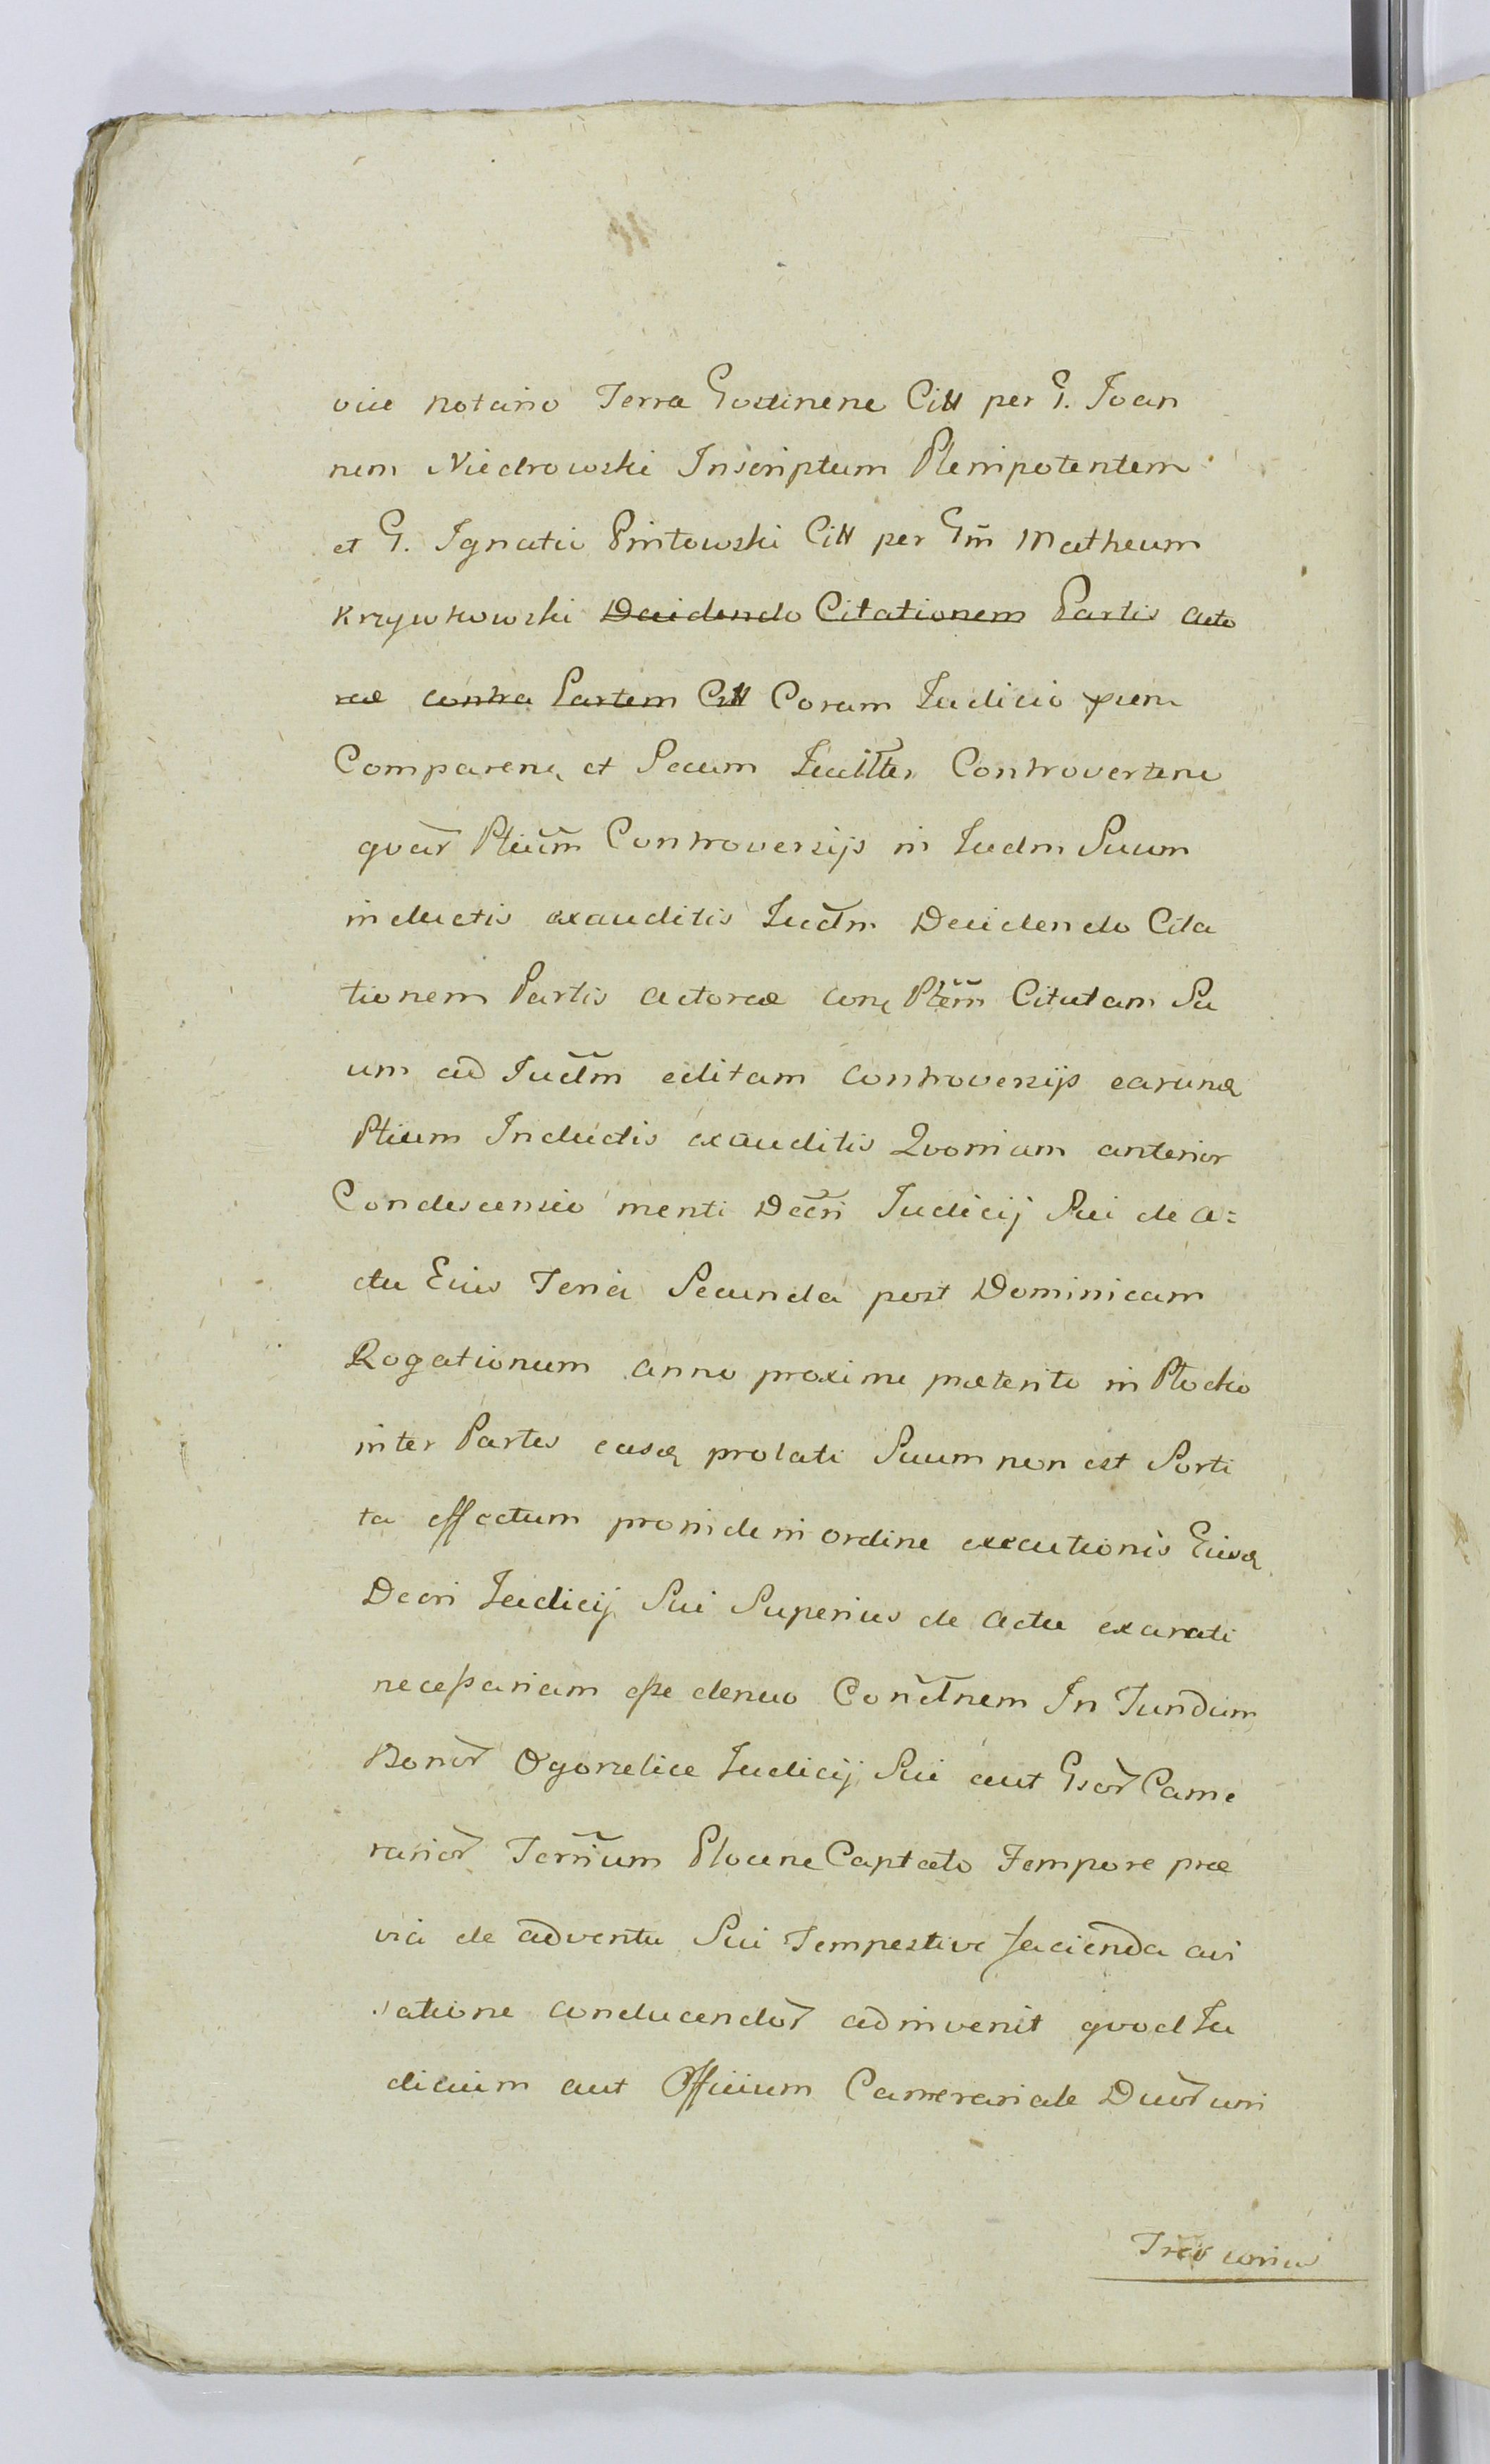 vice notario Terrae Gostinene Citt per G. Joan
nem Niedrowski Inscriptum Plenipotentem
et G. Ignatio Pintowski Citt per Gm̃ Matheum
Krzywkowski Decidendo Citationem Partis acto
reae contra Partem Citt Coram Judicio pñen
Comparenẽ et Secum Jucllter Controverteñ
quar̃ Ptium̃ Controversijs in Judm Suum
inductis exauditis Jucdm Decidendo Cita
tionem Partis actoreae conq̃ Ptem̃ Citatam Su
um ad Juc̃dm editam controversijs earunq̃
Ptium Inductis exauditis Qvoniam anterior
Condescensio menti Decr̃i Judicij Sui de a=
ctu Eius Feria Secunda post Dominicam
Rogationum anno proxime praeterito in Plocko
inter Partes easq̃ prolati Suum non est Sorti
ta effectum proinde in ordine executionis Eiusq̃
Decri Judicij Sui Superius de Actu exarati
necessariam esse denuo Conctnem In Fundum
Bonor̃ Ogorzelice Judicij Sui aut Gsor̃ Came
rarior̃ Terrium̃ Plocene Captato Tempore prae
via de adventu Sui Tempestive facienda avi
satione conducendor̃ adinvenit quod Ju
dicium aut Officium Camerariale Duor̃ uni